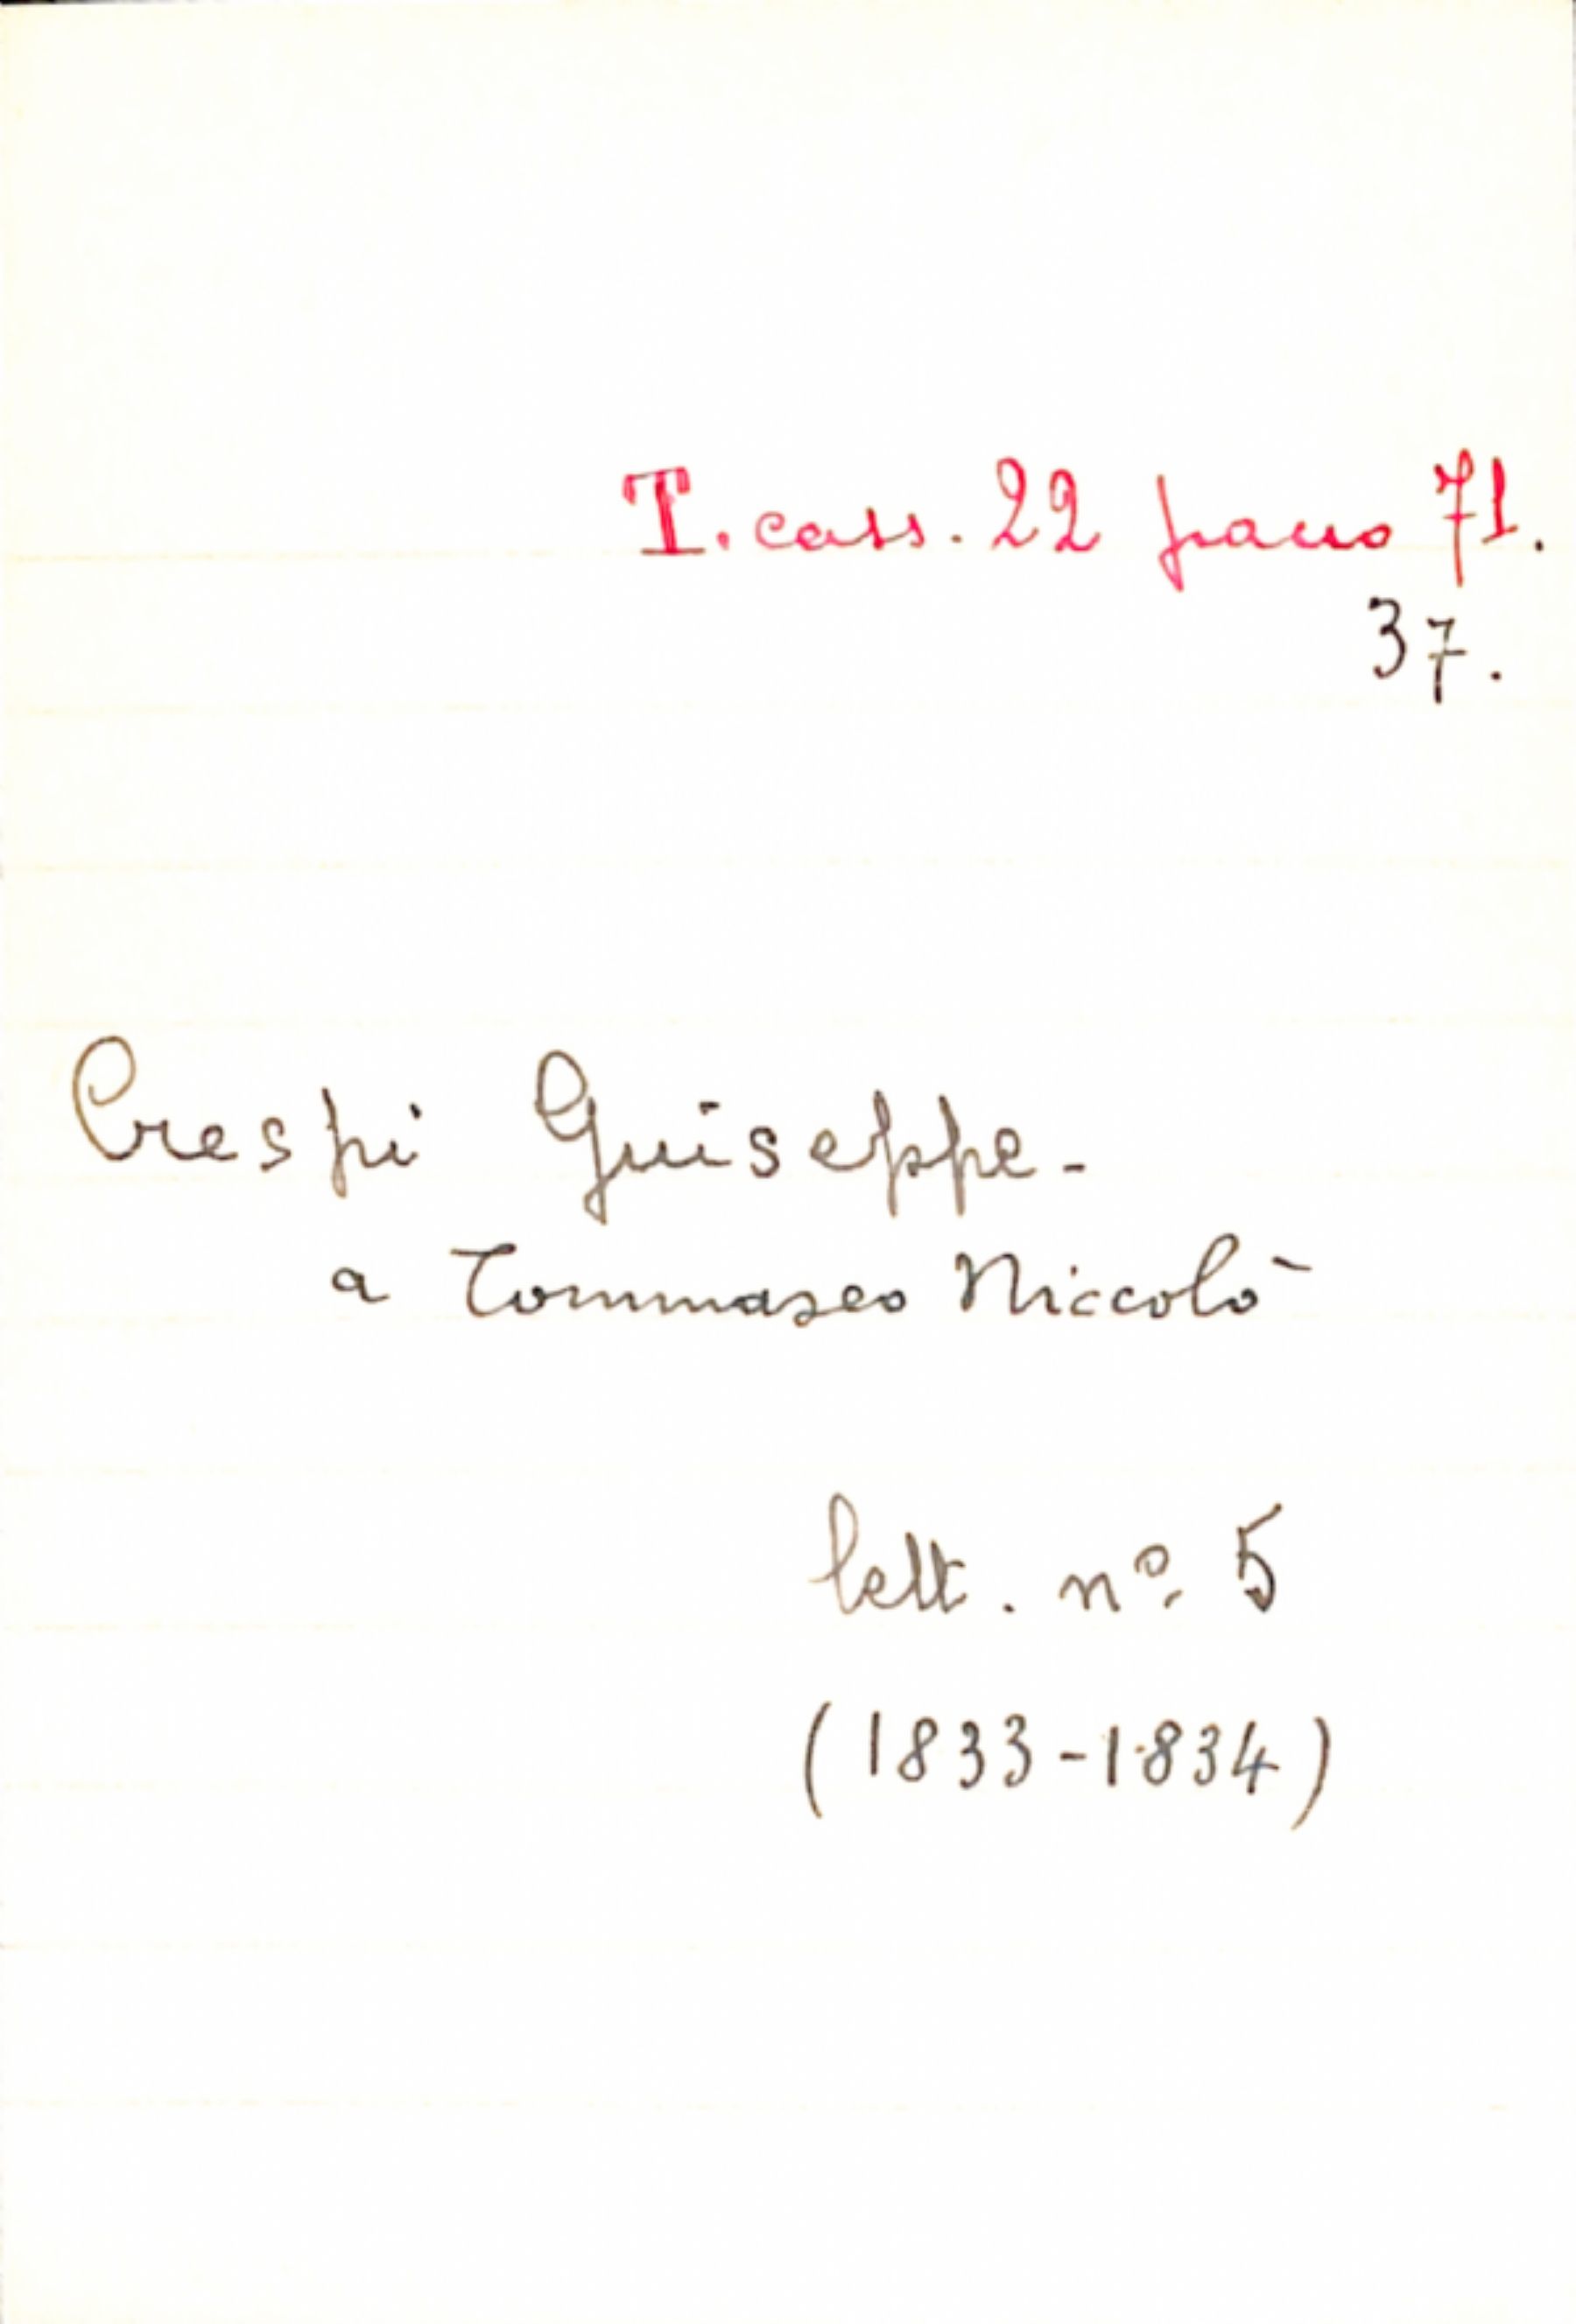 T. cass. 22 pacco 71.
37.
Crespi Giuseppe -
a Tommaseo Niccolò
lett. nº 5
(1833-1834)